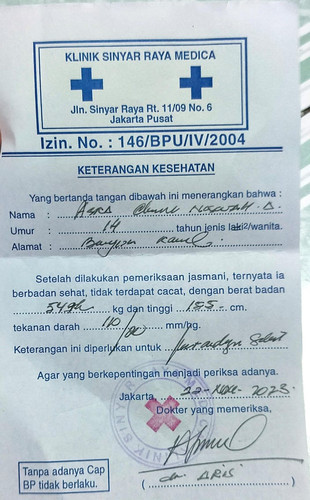 KLINIK SINYAR RAYA MEDICA
Jln. Sinyar Raya Rt. 11/09 No. 6
Jakarta Pusat
Izin. No. : 146/BPU/IV/2004
KETERANGAN KESEHATAN
Yang bertanda tangan dibawah ini menerangkan bahwa :
Nama :
Umur : 14 tahun jenis laki2/wanita.
Alamat :
Setelah dilakukan pemeriksaan jasmani, ternyata ia
berbadan sehat, tidak terdapat cacat, dengan berat badan
54 kg kg dan tinggi 155 cm.
tekanan darah 110/80 mm/kg.
Keterangan ini diperlukan untuk
Agar yang berkepentingan menjadi periksa adanya.
Jakarta, 22-Nov-2023
Dokter yang memeriksa,
Tanpa adanya Cap
BP tidak berlaku.
(dr ARIS)